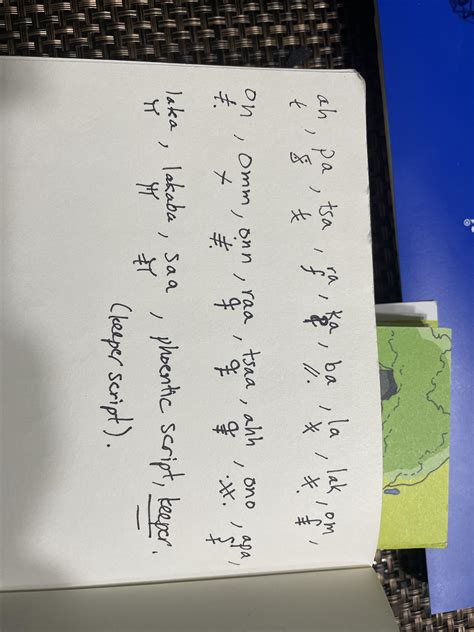 ah, pa, tsa, ra, ka, ba, la, lak, om,
oh, omm, onn, raa, tsaa, ahh, ono, apa,
laka, lakaba, saa, phoentic script, keeper.
(keeper script).